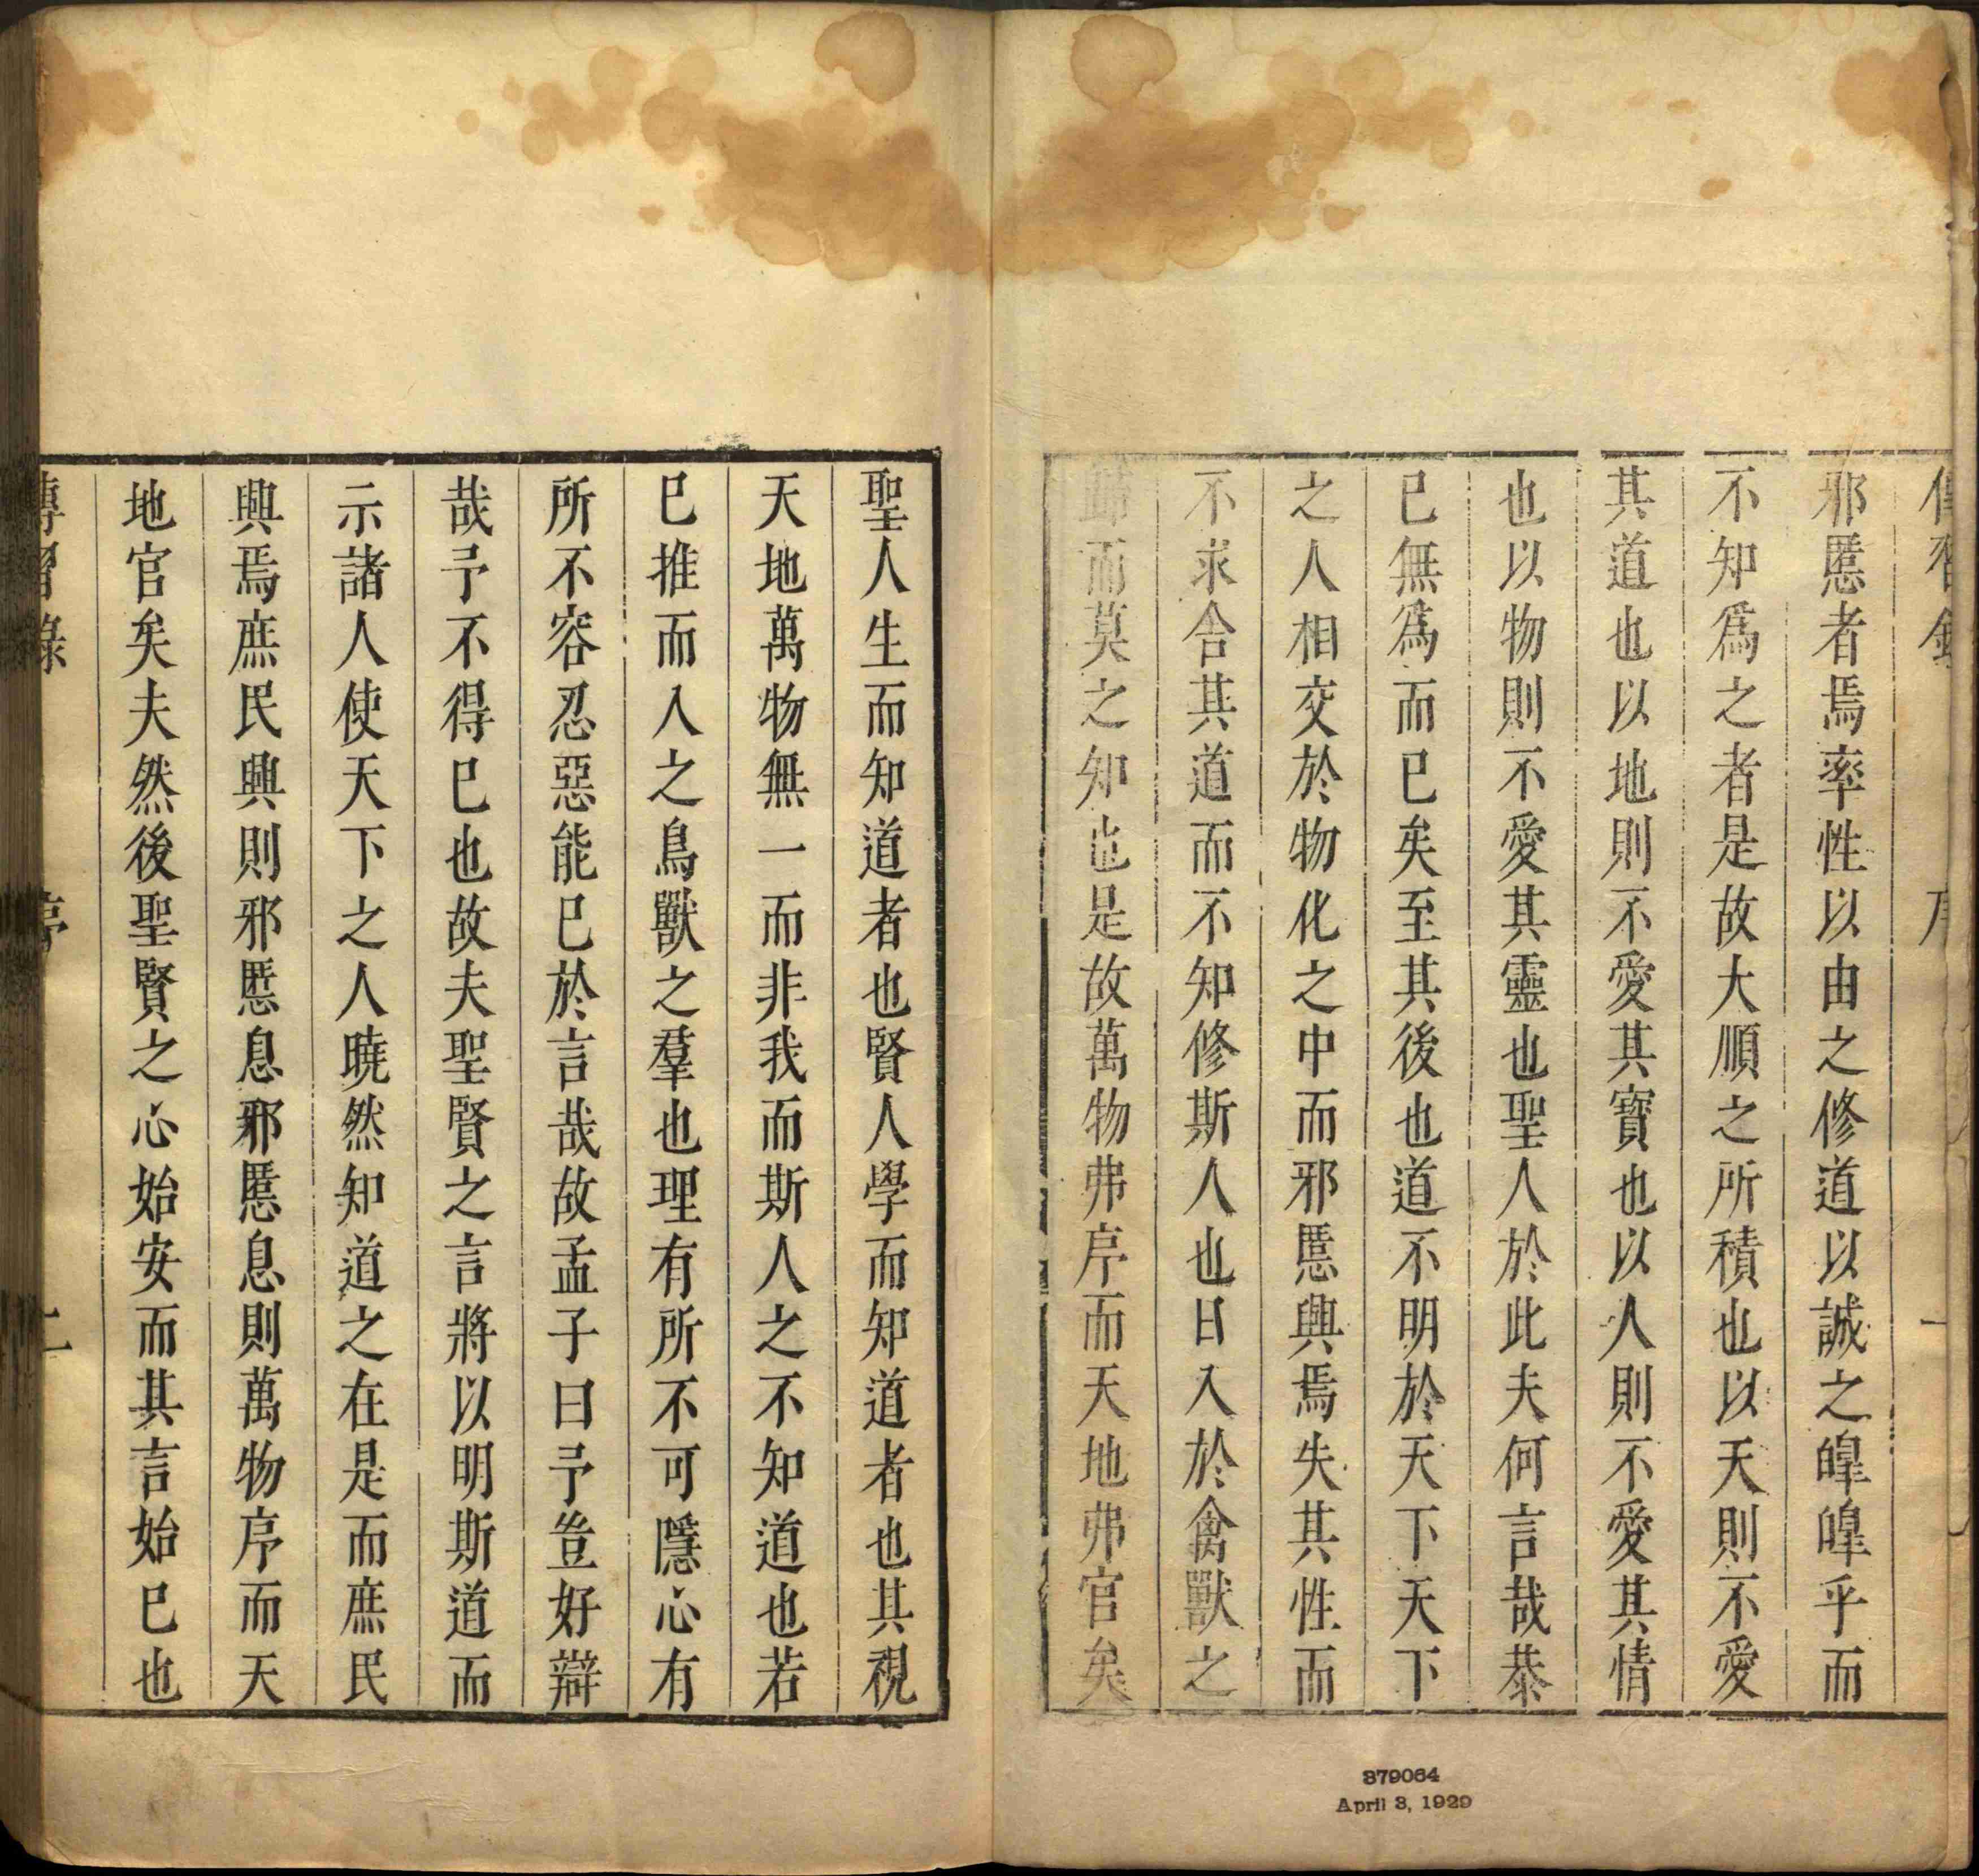 傳習錄 序 一
邪慝者焉率性以由之修道以誠之皡皡乎而
不知爲之者是故大順之所積也以天則不愛
其道也以地則不愛其寶也以人則不愛其情
也以物則不愛其靈也聖人於此夫何言哉恭
已無爲而已矣至其後也道不明於天下天下
之人相交於物化之中而邪慝興焉失其性而
不求舍其道而不知修斯人也日入於禽獸之
歸而莫之知也是故萬物弗序而天地弗官矣
聖人生而知道者也賢人學而知道者也其視
天地萬物無一而非我而斯人之不知道也若
已推而入之鳥獸之羣也理有所不可隱心有
所不容忍惡能已於言哉故孟子曰予豈好辯
哉予不得已也故夫聖賢之言將以明斯道而
示諸人使天下之人曉然知道之在是而庶民
興焉庶民興則邪慝息邪慝息則萬物序而天
地官矣夫然後聖賢之心始安而其言始已也
傳習錄 序 二
379064
April 3, 1929